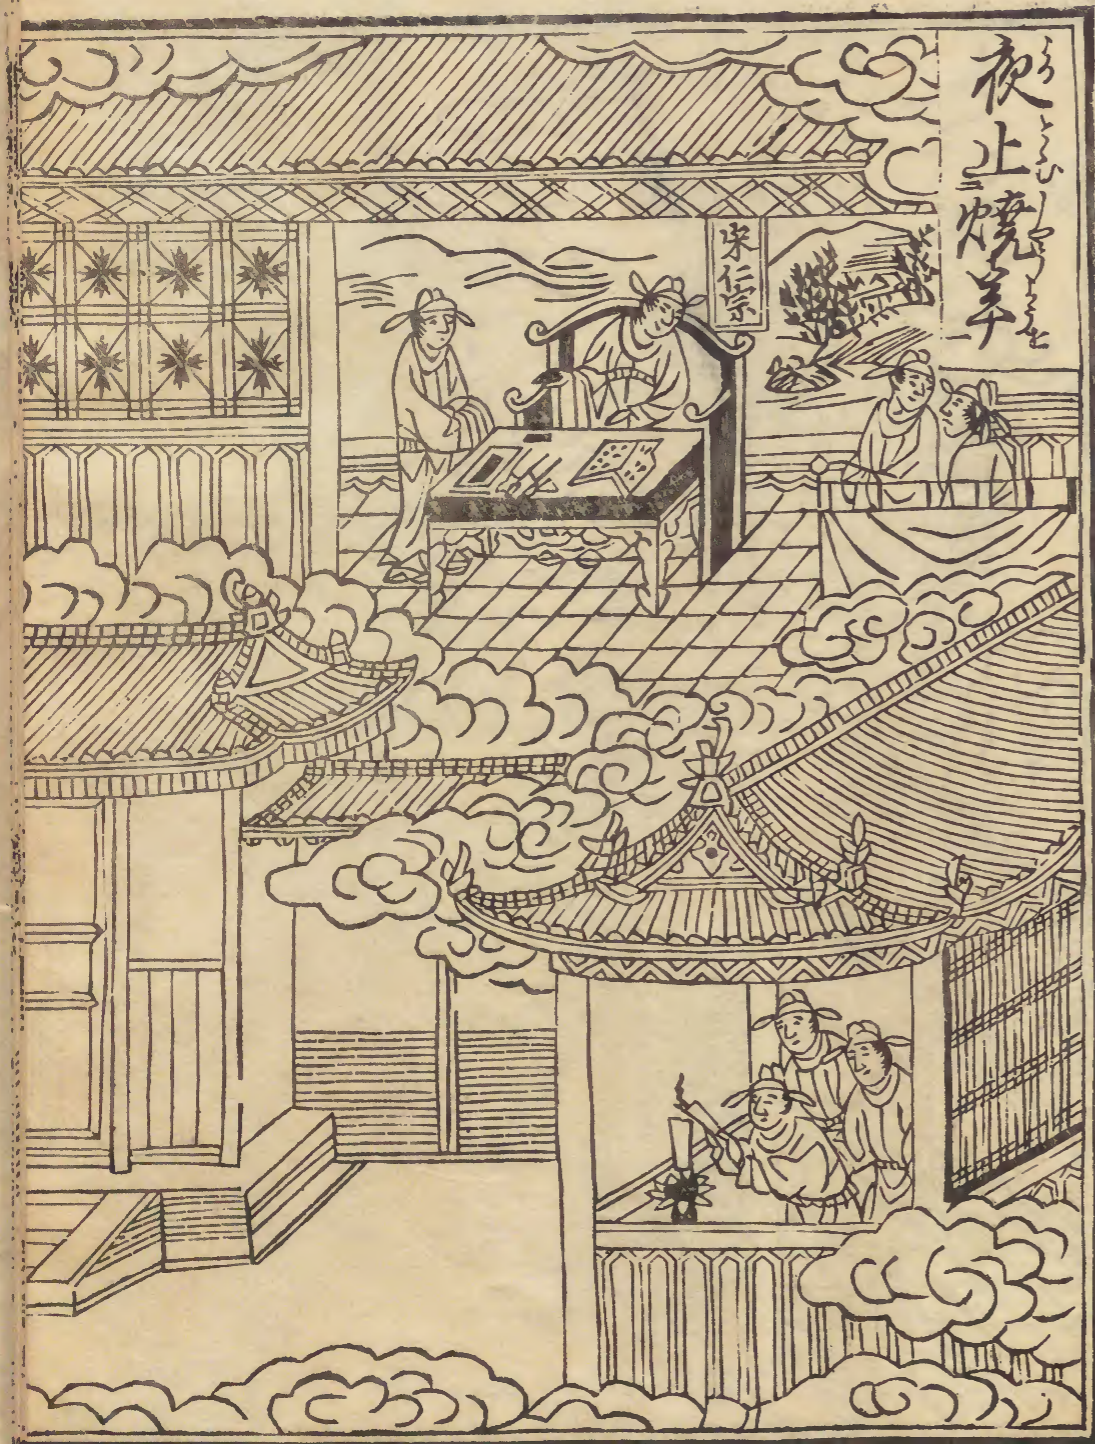 夜止燒羊
宋仁宗